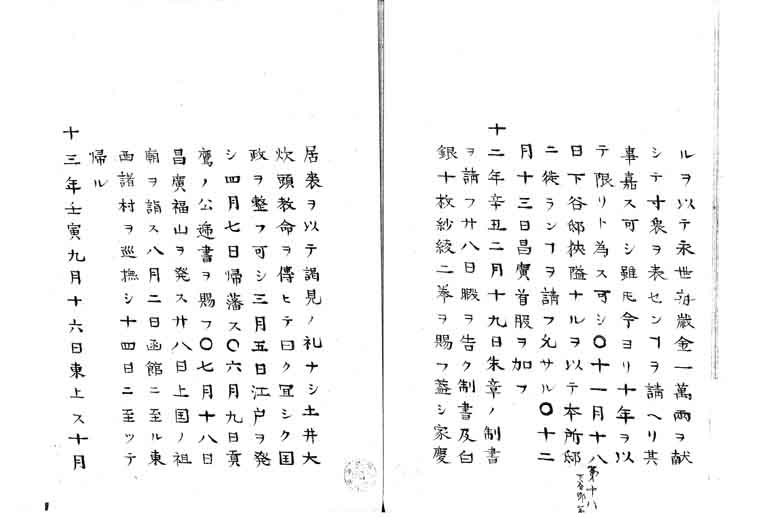 ルヲ以テ永世毎歳金一萬両ヲ献
シテ寸衷ヲ表センヿヲ請ヘリ其
事嘉ス可シ雖𪜈今ヨリ十年ヲ以
テ限リト為ス可シ〇十一月十八
日下谷邸狭隘ナルヲ以テ本所邸
ニ徙ランヿヲ請フ允サル〇十二
月十三日昌廣首服ヲ加フ
十二年辛丑二月十九日朱章ノ制書
ヲ請フ廿八日暇ヲ告ク制書及白
銀十枚紗綾二巻ヲ賜フ蓋シ家慶
第十八
居喪ヲ以テ謁見ノ礼ナシ土井大
炊頭教命ヲ傳ヒテ曰ク宜シク国
政ヲ整フ可シ三月五日江戸ヲ発
シ四月七日帰藩ス〇六月九日貢
鷹ノ公逓書ヲ賜フ〇七月十八日
昌廣福山ヲ発ス廿八日上国ノ祖
廟ヲ謁ス八月二日函館ニ至ル東
西諸村ヲ巡撫シ十四日ニ至ツテ
帰ル
十三年壬寅九月十六日東上ス十月